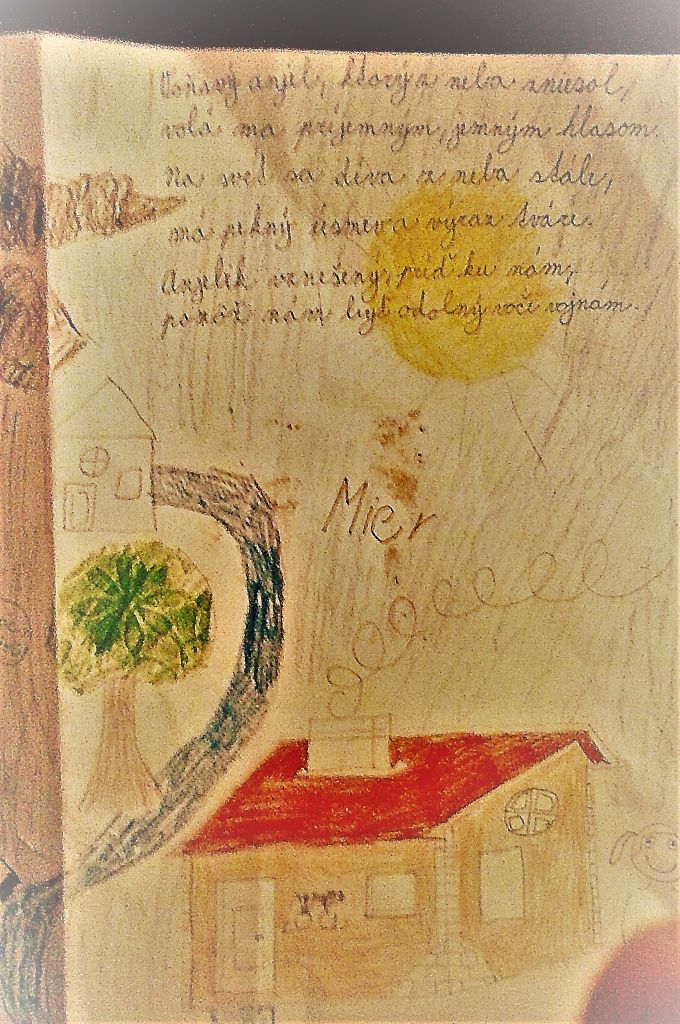 Voňavý anjel, ktorý z neba zniesol,
volá ma príjemným, jemným hlasom.
Na svet sa díva z neba stále,
má pekný úsmev a výraz tváre.
Anjelik vznešený, príď ku nám,
pomôž nám byť odolný voči vojnám.
Mier